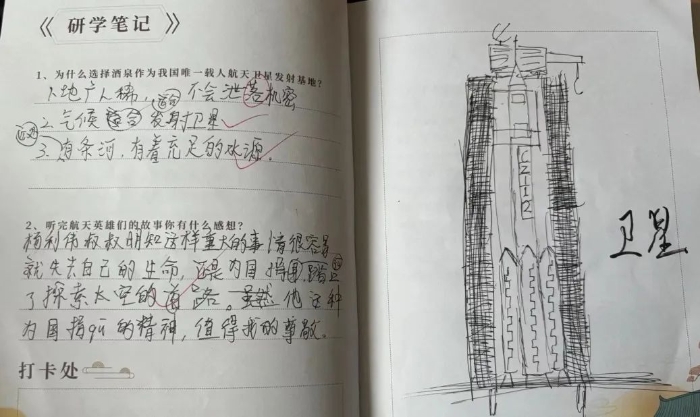 《 研学笔记 》
1、为什么选择酒泉作为我国唯一载人航天卫星发射基地?
1、地广人稀,不会泄落机密
2、气候适合发射卫星
3、有条河,有着充足的水源。
2、听完航天英雄们的故事你有什么感想?
杨利伟叔叔明知这样重大的事情很容易
就失去自己的生命,还是为国捐
了探索太空的道路。虽然他这种
为国捐qū的精神,值得我的尊敬。
打卡处
卫星